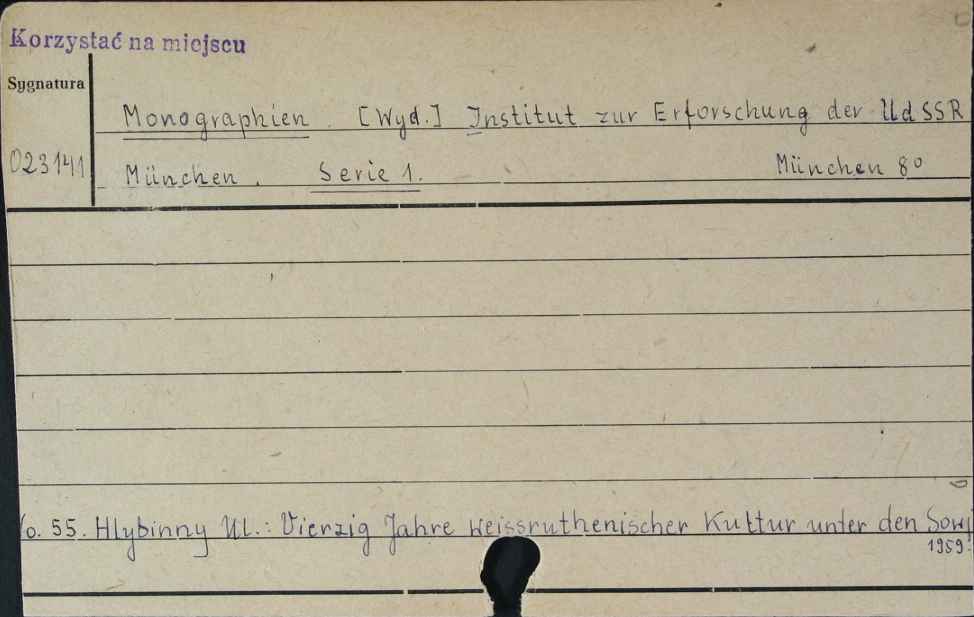 Korzystać na miejscu
Sygnatura
Monographien. [Wyd.] Institut zur Erforschung der UdSSR
023141
München. Serie 1. München 80
No. 55. Hlybinny Ul.: Vierzig Jahre weissruthenischer Kultur unter den Sowj
1959.